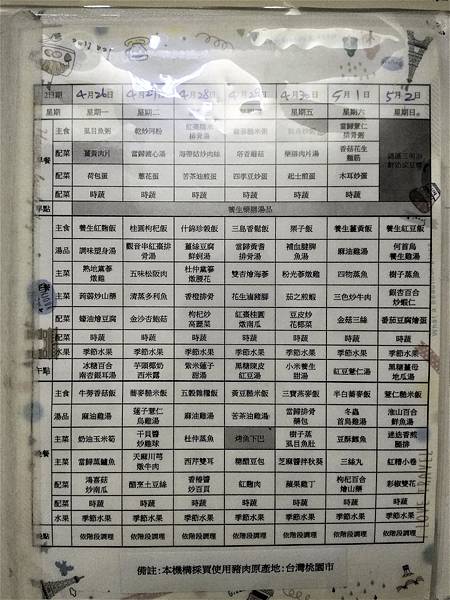 日期 4月26日 4月27日 4月28日 4月29日 4月30日 5月1日 5月2日
星期 星期一 星期二 星期三 星期四 星期五 星期六 星期日
早餐
主食 虱目魚粥 乾炒河粉 當歸薏仁排骨粥
配菜 薑黃肉片 當歸滷心湯 海帶菇炒肉絲 塔香蘑菇 藥膳肉片湯 香菇花生麵筋
配菜 荷包蛋 蔥花蛋 苦茶油煎蛋 四季豆炒蛋 起士煎蛋 木耳炒蛋
配菜 時蔬 時蔬 時蔬 時蔬 時蔬 時蔬
早點 養生藥膳湯品
主食 養生紅麴飯 桂圓枸杞飯 什錦珍穀飯 三島香鬆飯 栗子飯 養生薑黃飯 養生紅豆飯
湯品 調味塑身湯 觀音串紅棗排骨湯 薑絲豆腐鮮蚵湯 當歸黃耆排骨湯 補血腰脾魚湯 麻油雞湯 何首烏養生雞湯
主菜 熟地黨蔘燉雞 五味松阪肉 杜仲黨蔘燉腰花 雙杏燴海蔘 粉光蔘燉雞 四物蒸魚 樹子蒸魚
主菜 蒟蒻炒山藥 清蒸多利魚 香橙排骨 花生滷豬腳 茄之煎蝦 三色炒牛肉 銀杏百合炒蝦仁
配菜 蠔油燴豆腐 金沙杏鮑菇 枸杞炒高麗菜 紅棗桂圓燉南瓜 豆皮炒花椰菜 金菇三絲 番茄豆腐燴蛋
配菜 時蔬 時蔬 時蔬 時蔬 時蔬 時蔬 時蔬
水果 季節水果 季節水果 季節水果 季節水果 季節水果 季節水果 季節水果
午點 冰糖百合南杏銀耳湯 芋頭椰奶西米露 紫米蓮子甜湯 黑糖陳皮紅豆湯 小米養生甜湯 紅豆薏仁湯 黑糖薑母地瓜湯
晚餐
主食 牛蒡香菇飯 蕎麥糙米飯 五穀雜糧飯 黃豆糙米飯 三寶燕麥飯 半白蕎麥飯 薏仁糙米飯
湯品 麻油雞湯 蓮子薏仁烏雞湯 麻油雞湯 苦茶油雞湯 當歸排骨藥包 冬蟲首烏雞湯 淮山百合鮮魚湯
主菜 奶油玉米筍 干貝醬炒雞球 杜仲蒸魚 烤魚下巴 樹子蒸虱目魚肚 豆酥鱈魚 迷迭香煎腿排
主菜 當歸蒸鱸魚 天麻川芎燉牛肉 西芹雙耳 糖醋豆包 芝麻醬拌秋葵 三絲丸 紅糟小卷
配菜 鴻喜菇炒南瓜 醋烹土豆絲 香椿醬炒百頁 紅麴肉 蘋果雞丁 枸杞百合燴山藥 彩椒雙花
配菜 時蔬 時蔬 時蔬 時蔬 時蔬 時蔬 時蔬
水果 季節水果 季節水果 季節水果 季節水果 季節水果 季節水果 季節水果
晚點 依階段調理 依階段調理 依階段調理 依階段調理 依階段調理 依階段調理 依階段調理
備註:本機構採買使用豬肉原產地:台灣桃園市